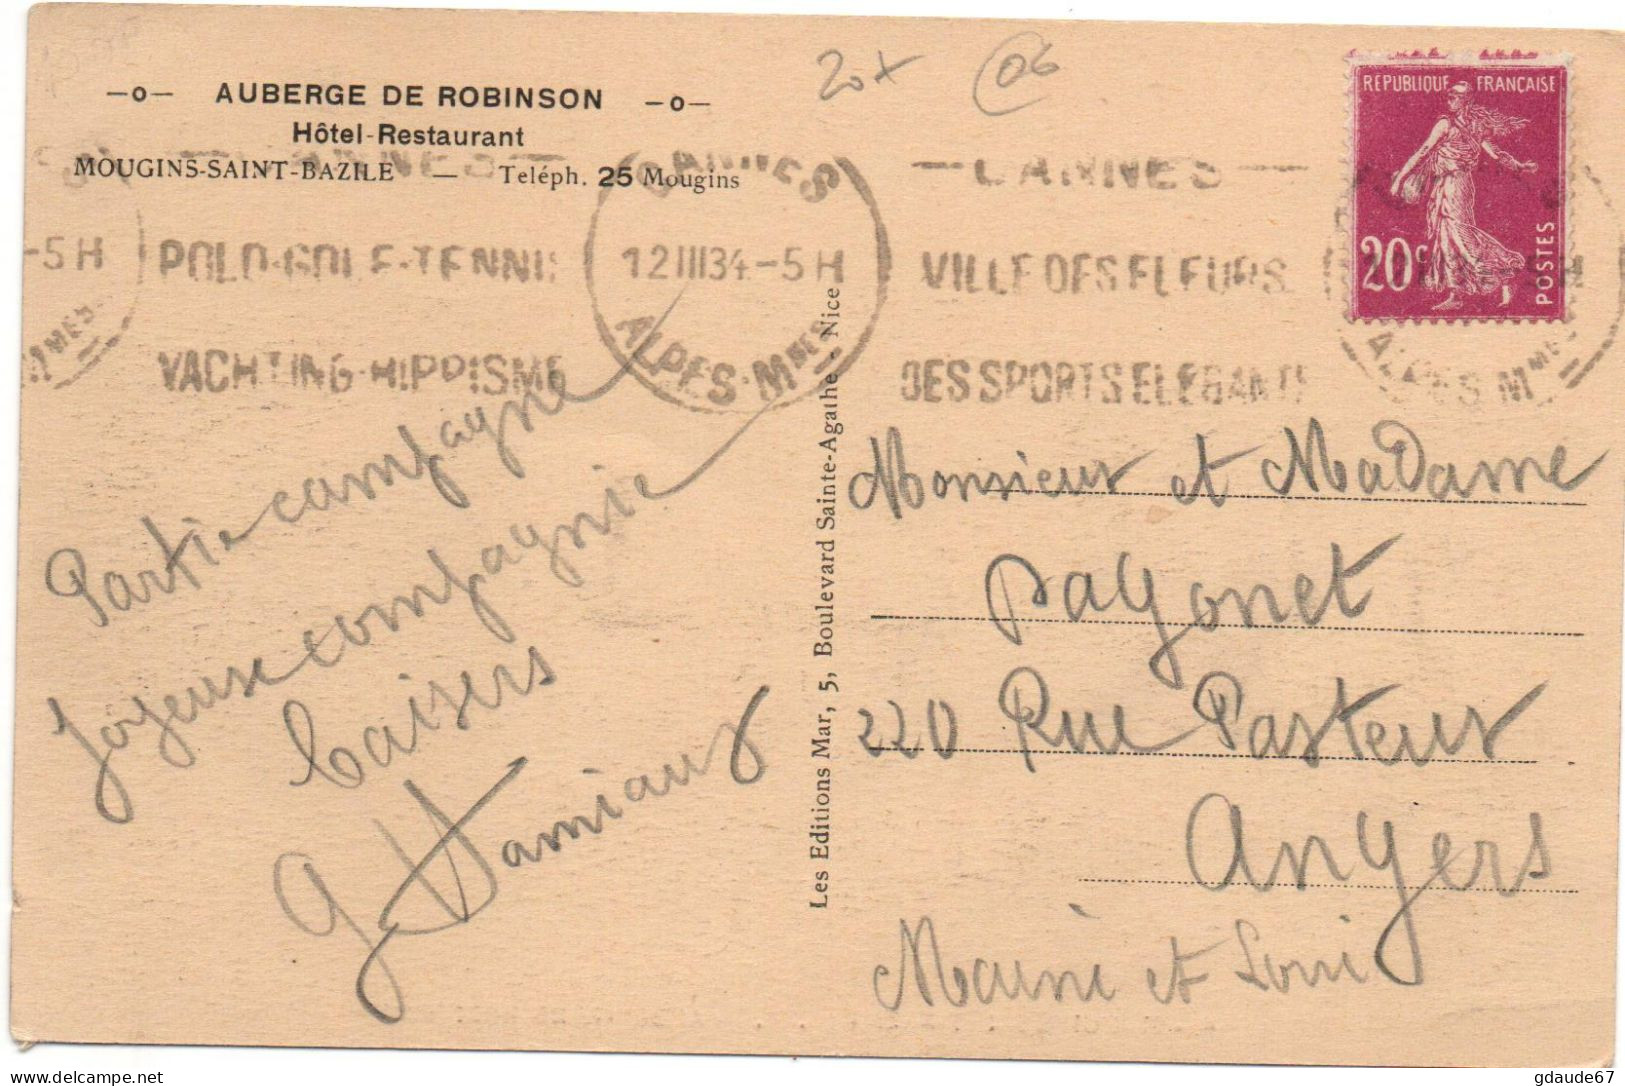 20+ 06
—o— AUBERGE DE ROBINSON —o—
Hôtel-Restaurant
MOUGINS-SAINT-BAZILE — Teléph. 25 Mougins
CANNES
POLO-GOLF-TENNIS
YACHTING-HIPPISME
CANNES
12 III 34 -5H
ALPES-Mmes
— CANNES —
VILLE DES FLEURS
DES SPORTS ELEGANTS
-5H
REPUBLIQUE FRANÇAISE
20c
POSTES
ALPES-Mmes
Partie campagne
Joyeuse compagnie
baisers
Les Editions Mar, 5, Boulevard Sainte-Agathe - Nice
Monsieur et Madame
Pagonet
220 Rue Pasteur
Angers
Maine et Loire
gdaude67